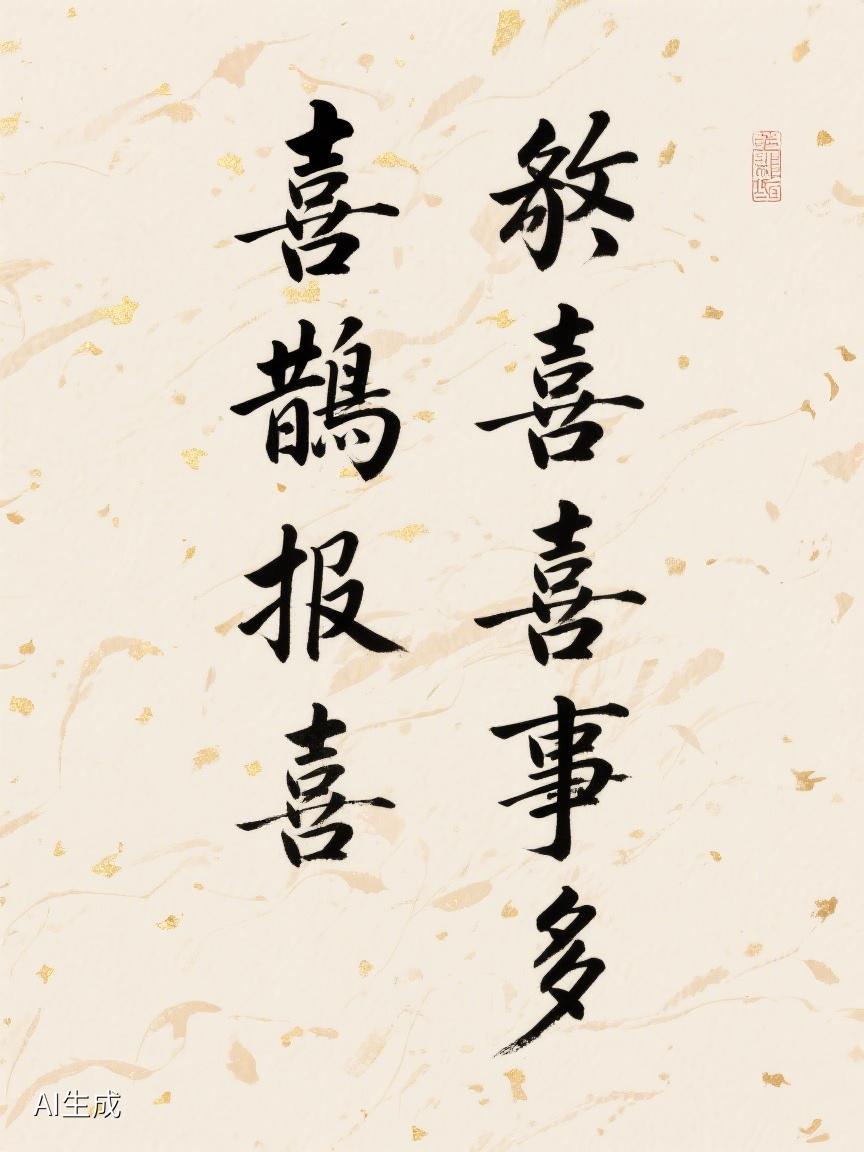 喜喜事多
喜鹊报喜
AI生成